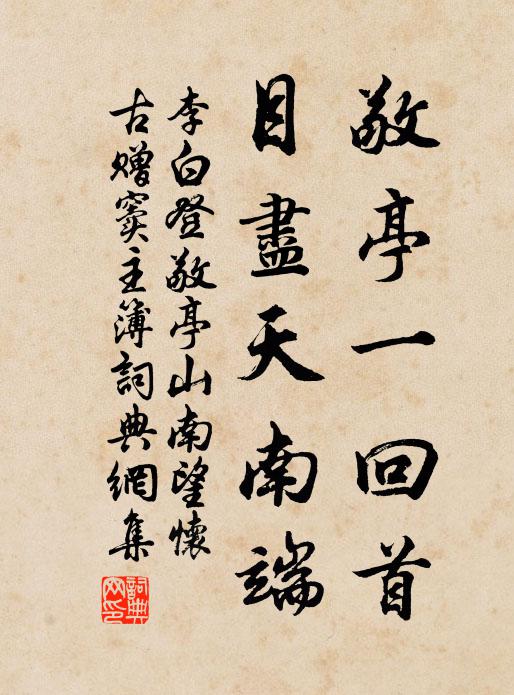 敬亭一回首
目盡天南端
李白登敬亭山南望懷
古贈竇主簿詞典網集
詞典網印